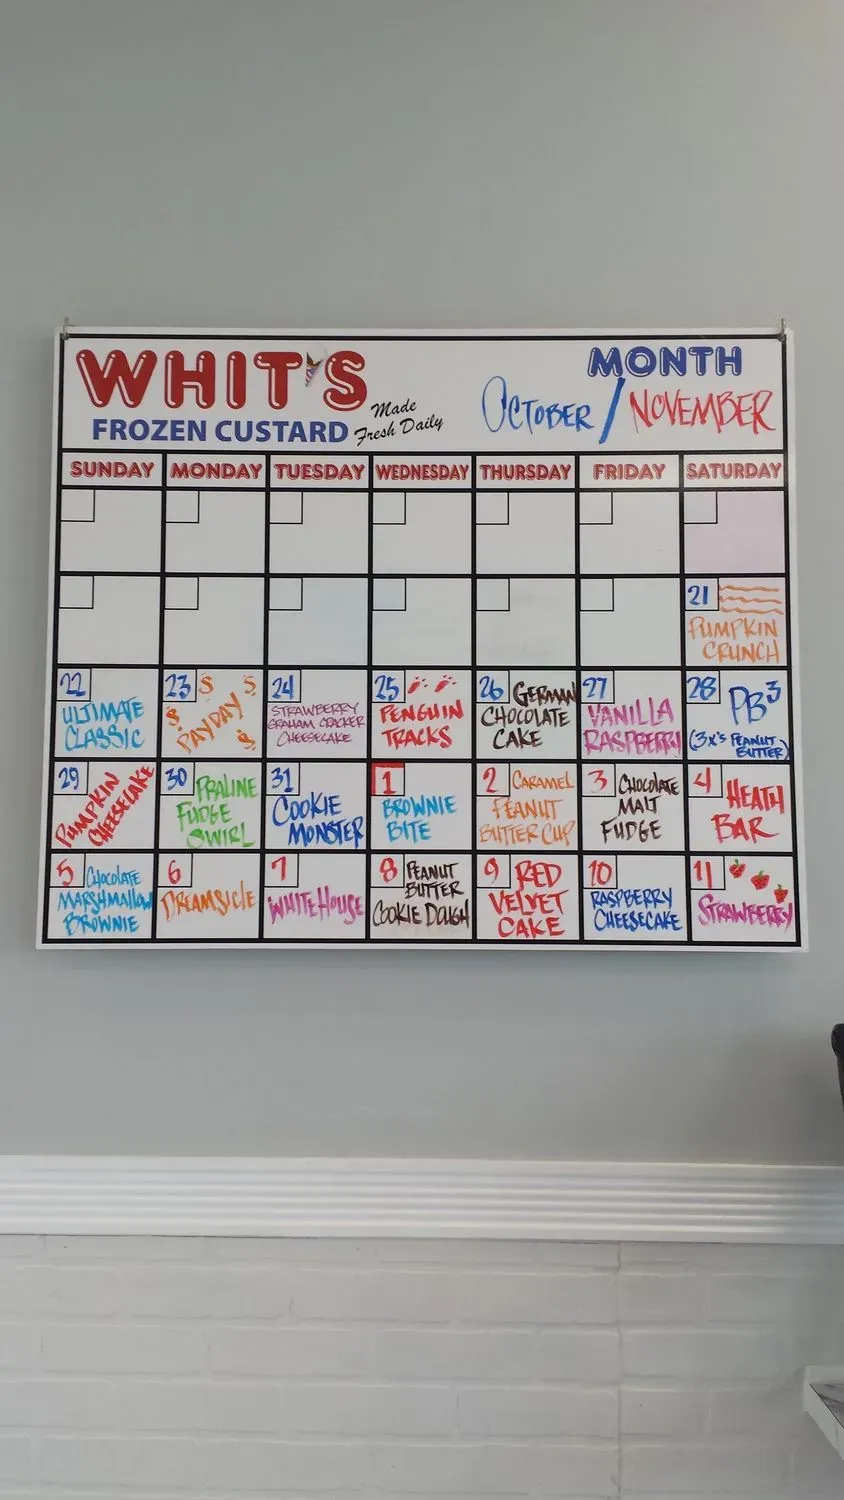 WHIT'S
FROZEN CUSTARD
Made
Fresh Daily
MONTH
OCTOBER / NOVEMBER
SUNDAY MONDAY TUESDAY WEDNESDAY THURSDAY FRIDAY SATURDAY
21
PUMPKIN
CRUNCH
22
ULTIMATE
CLASSIC
23 $ $
$ PAYDAY $
24
STRAWBERRY
GRAHAM CRACKER
CHEESECAKE
25
PENGUIN
TRACKS
26 GERMAN
CHOCOLATE
CAKE
27
VANILLA
RASPBERRY
28 PB³
(3x's PEANUT
BUTTER)
29
PUMPKIN
CHEESECAKE
30 PRALINE
FUDGE
SWIRL
31
COOKIE
MONSTER
1
BROWNIE
BITE
2 CARAMEL
PEANUT
BUTTER CUP
3 CHOCOLATE
MALT
FUDGE
4 HEATH
BAR
5 CHOCOLATE
MARSHMALLOW
BROWNIE
6
DREAMSICLE
7
WHITEHOUSE
8 PEANUT
BUTTER
COOKIE DOUGH
9 RED
VELVET
CAKE
10
RASPBERRY
CHEESECAKE
11
STRAWBERRY